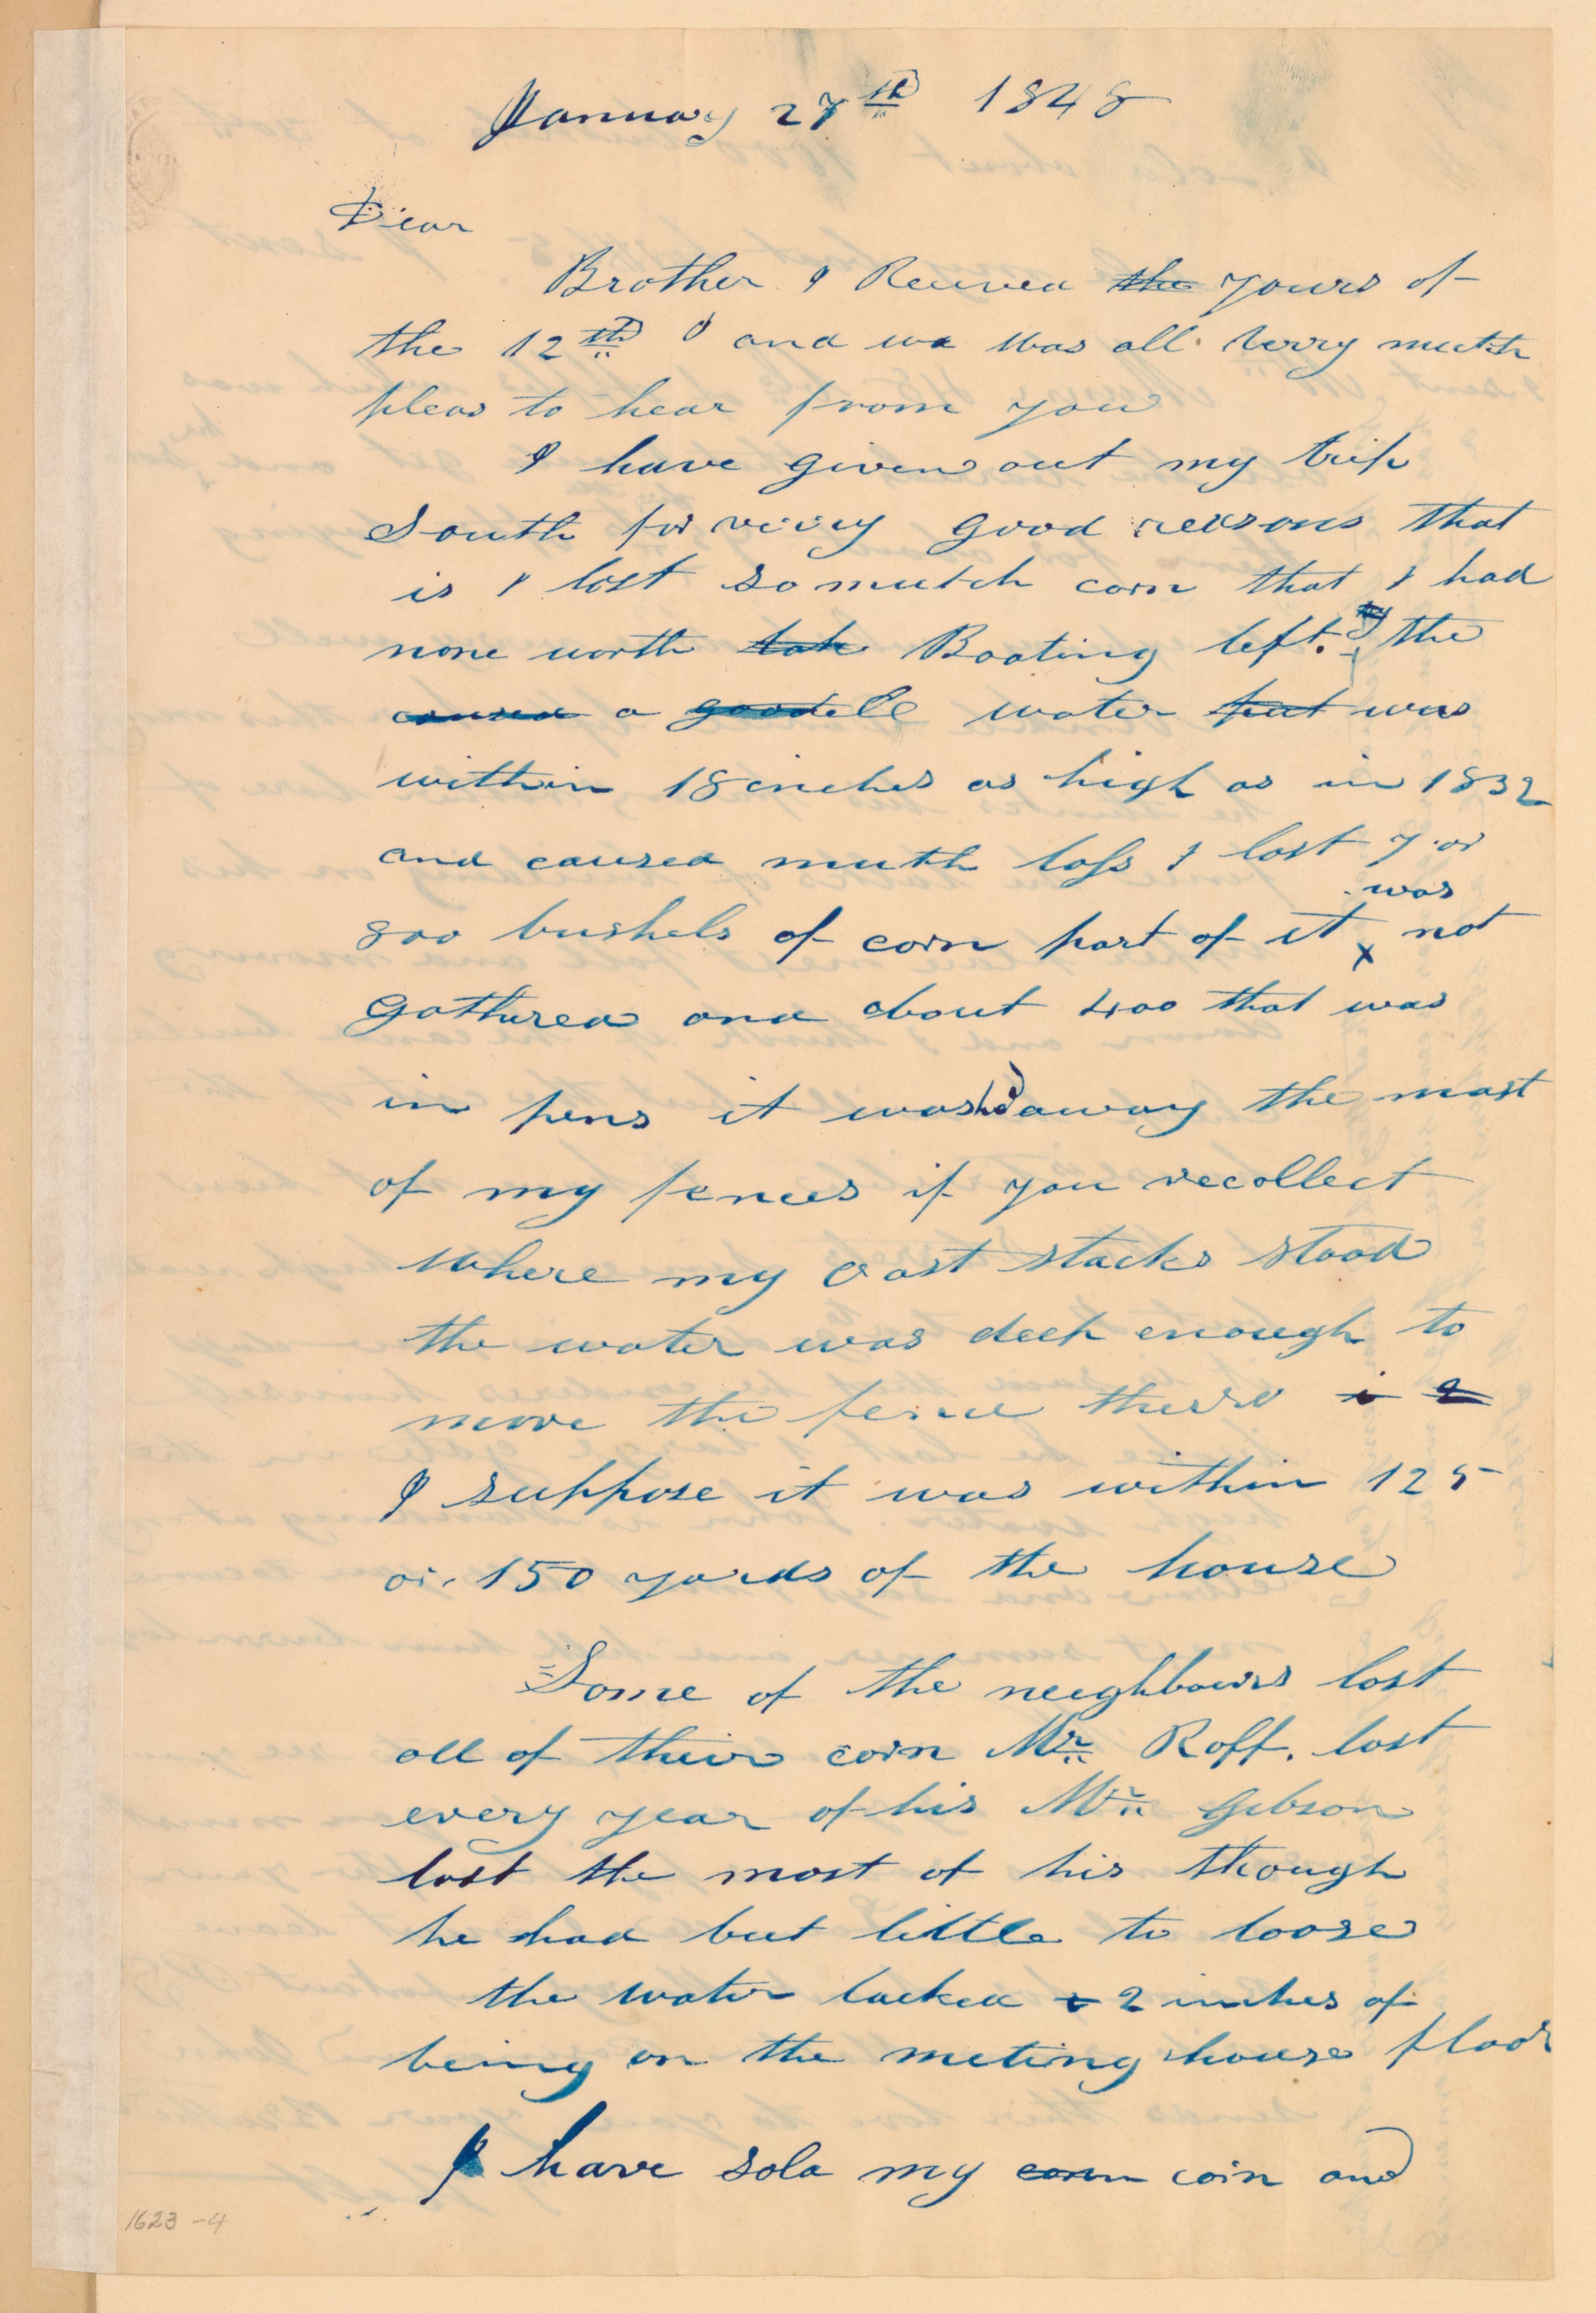 January 27th 1848
Dear
Brother I Receivea the yours of
the 12th and we was all verry mutch
pleas to hear from you
I have given out my trip
South for verry good reasons that
is I lost so mutch corn that I had
none worth tak Boating left. the
caused a good ell water but was
within 18 inches as high as in 1832
and caused mutch loss I lost 7 or
was
800 bushels of corn part of it x not
Gathured and about 400 that was
in pens it washed away the most
of my fences if you recollect
where my oast stacks stood
the water was deep enough to
move the fence there i 2
I suppose it was within 125
or 150 yards of the house
Some of the neighbours lost
all of their corn Mr Roff. lost
every year of his Mr Gibson
lost the most of his though
he had but little to loose
the water lacked 2 inches of
being on the meting house floor
I have sold my corn corn and
1623-4